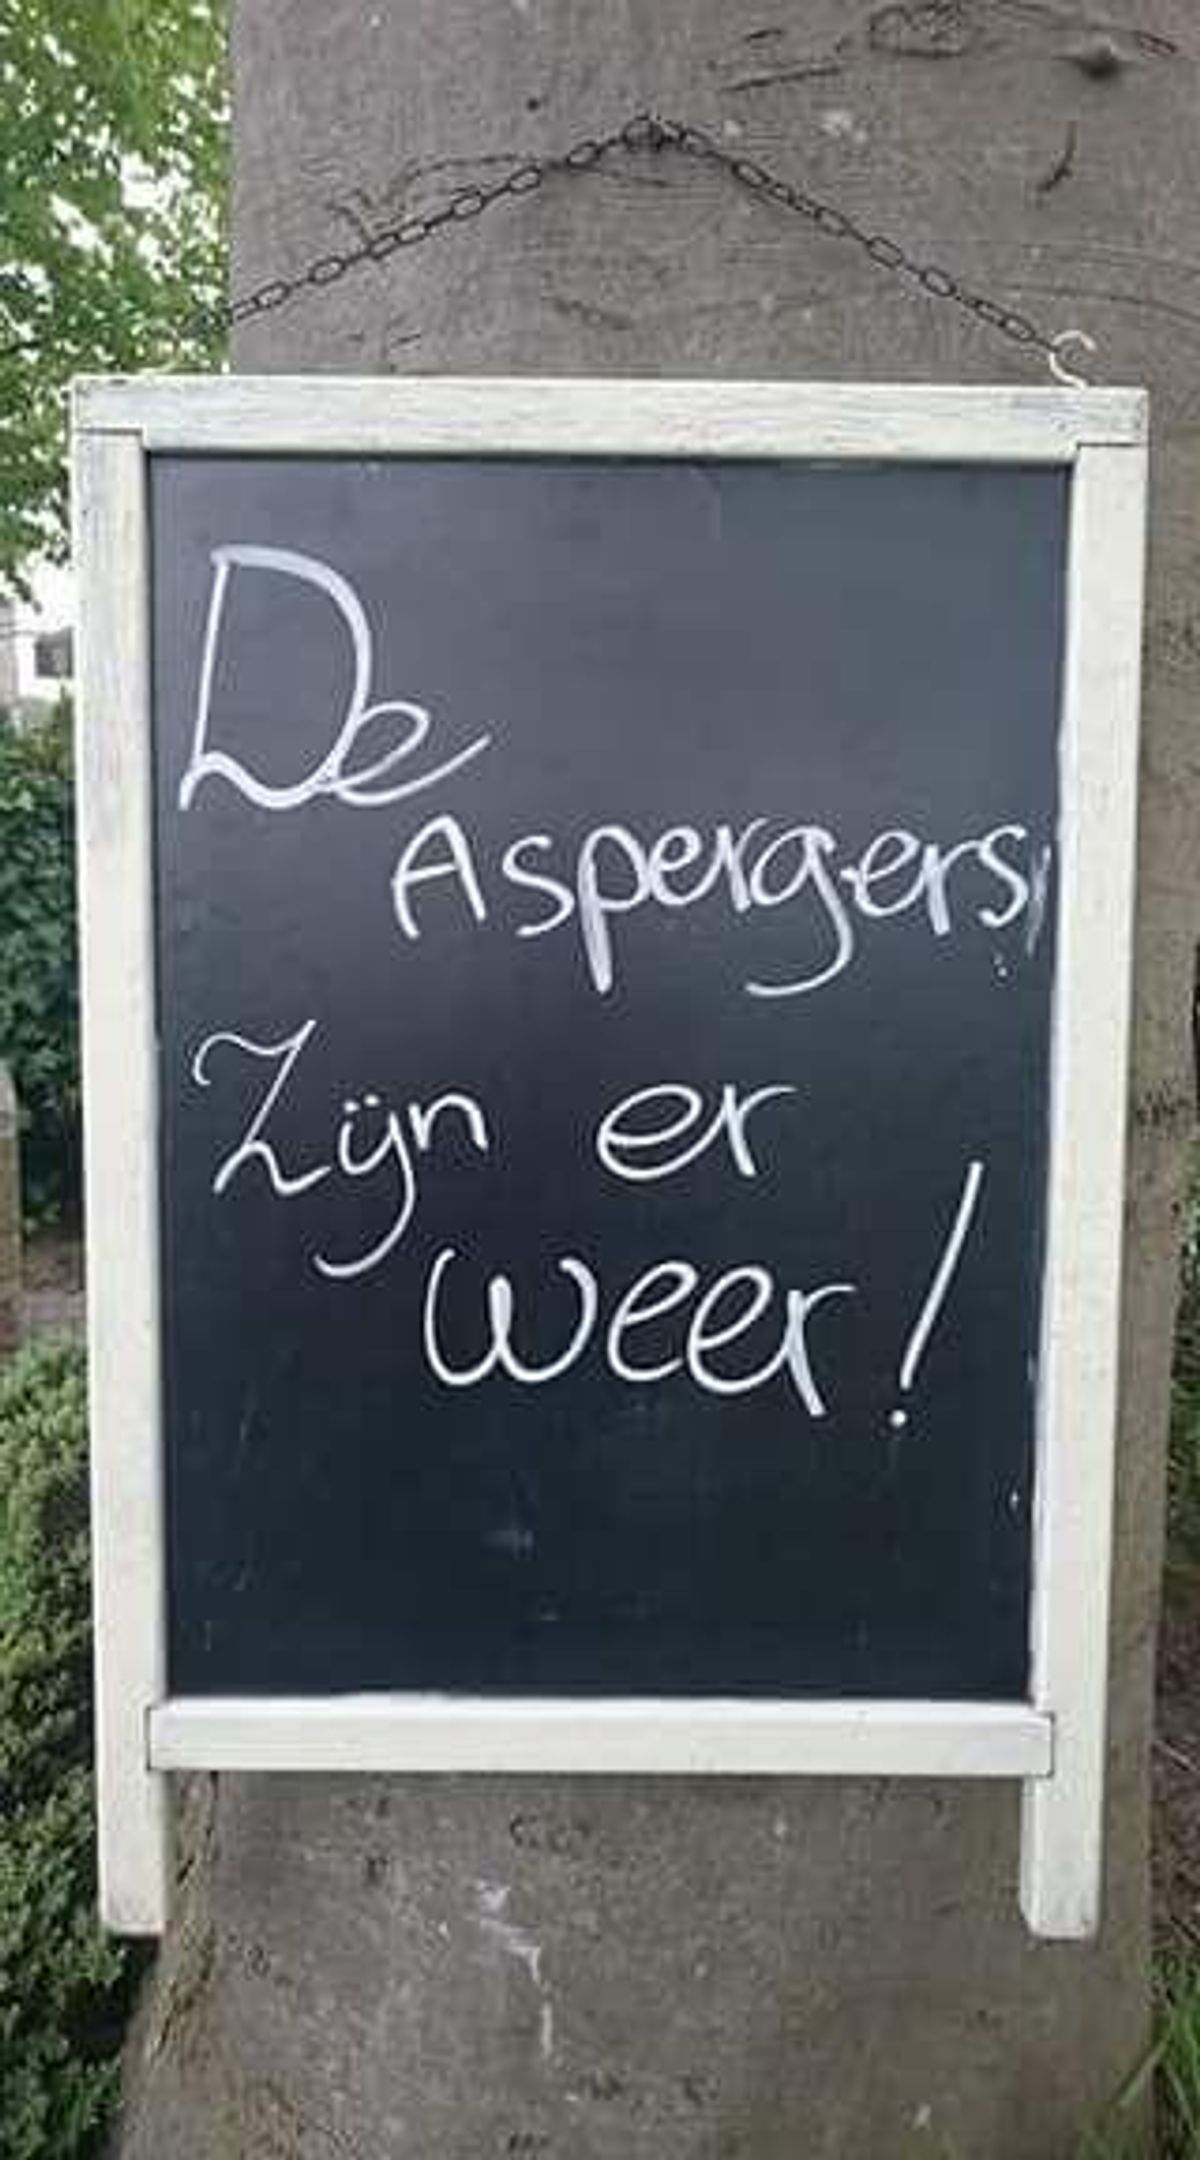 De
Aspergers
Zijn er
weer!